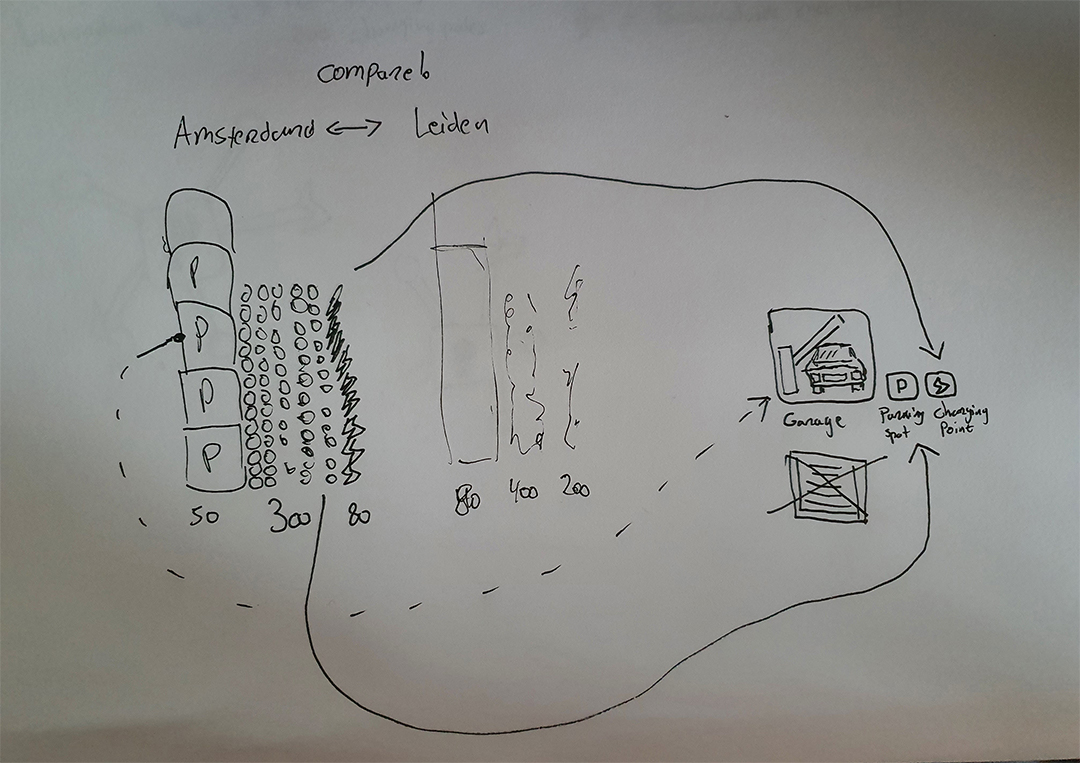 compare
Amsterdam <-> Leiden
P
P
P
P
50 300 80
400 200
P
Garage
spot
Charging
Point